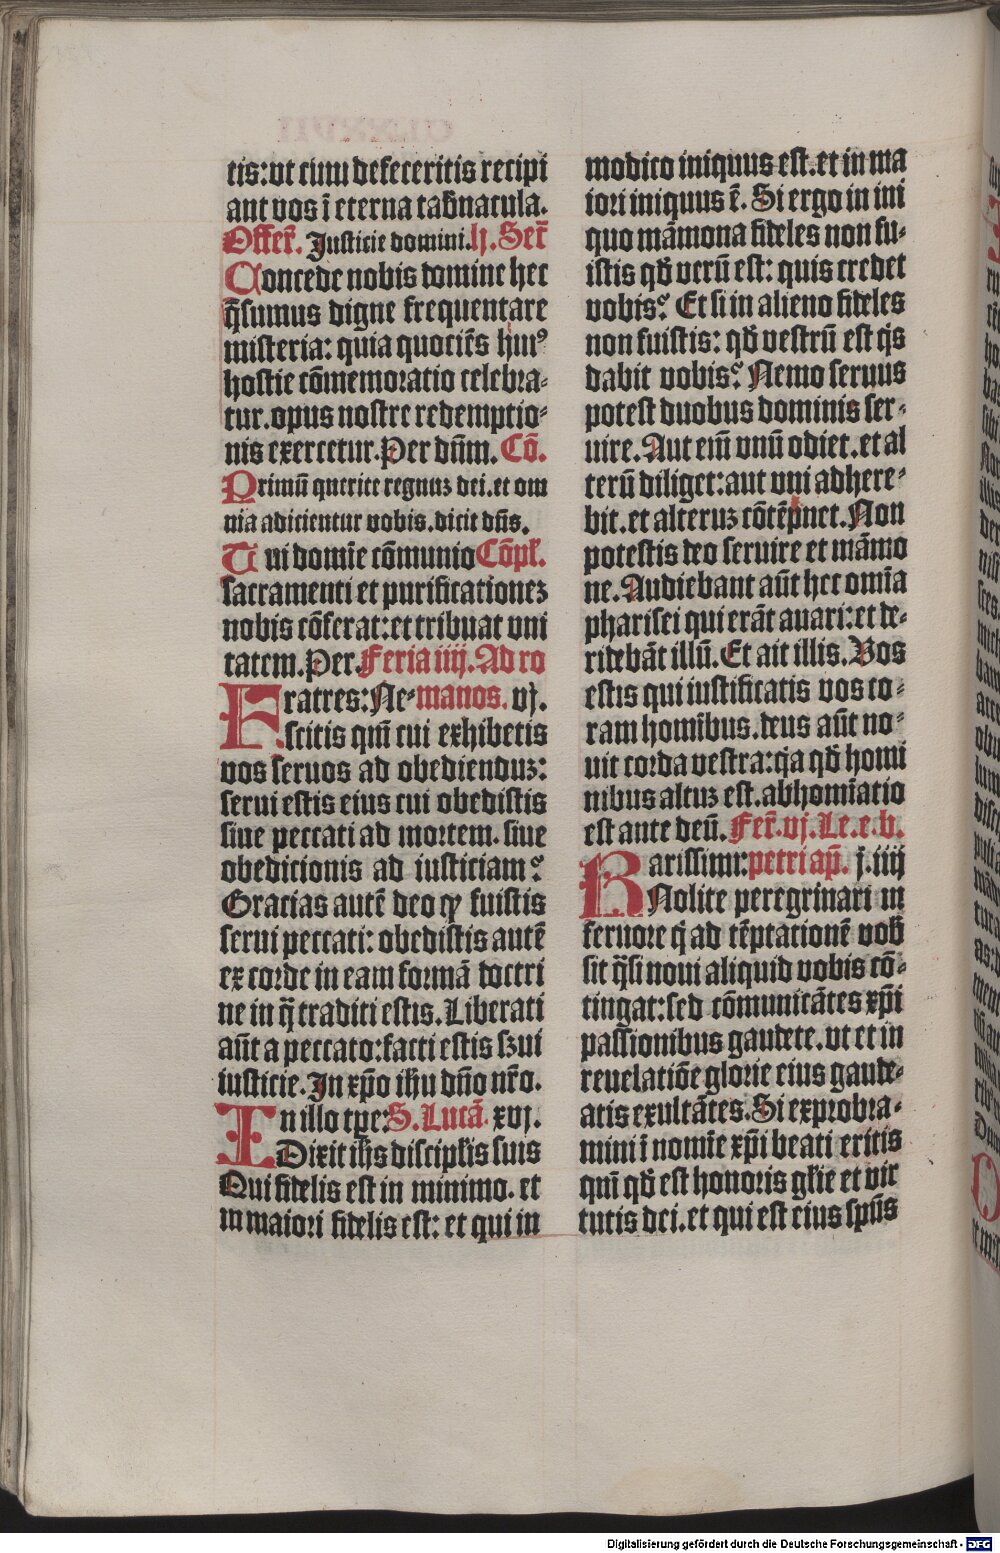 tis: vt cum defeceritis recipi
ant vos ī eterna tab̄nacula.
Offer̄. Justicie domini. lj. Secr̄
Concede nobis domine hec
q̄sumus digne frequentare
misteria: quia quociēs huiꝰ
hostie cōmemoratio celebra⸗
tur. opus nostre redemptio⸗
nis exercetur. Per dn̄m. Cō.
Primū querite regnuꝫ dei. et om
nia adicientur vobis. dicit dn̄s.
Tui domīe cōmunio Cōpl̄.
sacramenti et purificationeꝫ
nobis cōferat: et tribuat vni
tatem. Per. Feria iiij. Ad ro
Fratres: Ne⸗ manos. vj.
scitis qm̄ cui exhibetis
vos seruos ad obedienduꝫ:
serui estis eius cui obedistis
siue peccati ad mortem. siue
obedicionis ad iusticiam?
Gracias autē deo ꝙ fuistis
serui peccati: obedistis autē
ex corde in eam formā doctri
ne in q̄ traditi estis. Liberati
aūt a peccato: facti estis s̄ui
iusticie. In xp̄o ihū dn̄o nr̄o.
In illo tꝑe: S. Lucā. xvj.
Dixit ihs̄ discipl̄is suis
Qui fidelis est in minimo. et
in maiori fidelis est: et qui in
modico iniquus est. et in ma
iori iniquus ē. Si ergo in ini
quo māmona fideles non fu⸗
istis qd̄ verū est: quis credet
vobis? Et si in alieno fideles
non fuistis: qd̄ vestrū est q̇s
dabit vobis? Nemo seruus
potest duobus dominis ser⸗
uire. Aut em̄ vnū odiet. et al
terū diliget: aut vni adhere⸗
bit. et alteruꝫ cōtēpnet. Non
potestis deo seruire et māmo
ne. Audiebant aūt hec omīa
pharisei qui erāt auari: et de⸗
ridebāt illū. Et ait illis. Vos
estis qui iustificatis vos co⸗
ram homībus. deus aūt no⸗
uit corda vestra: q̇a qd̄ homi
nibus altuꝫ est. abhomīatio
est ante deū. Fer̄. vj. Le. e. b.
Karissimi: petri ap̄. j. iiij
Nolite peregrinari in
feruore q̇ ad tēptationē vob̄
fit q̄si noui aliquid vobis cō⸗
tingat: sed cōmunicātes xp̄i
passionibus gaudete. vt et in
reuelatiōe glorie eius gaude⸗
atis exultātes. Si exprobra⸗
mini ī nomīe xp̄i beati eritis
qm̄ qd̄ est honoris gl̄ie et vir
tutis dei. et qui est eius sp̄us
Digitalisierung gefördert durch die Deutsche Forschungsgemeinschaft - DFG